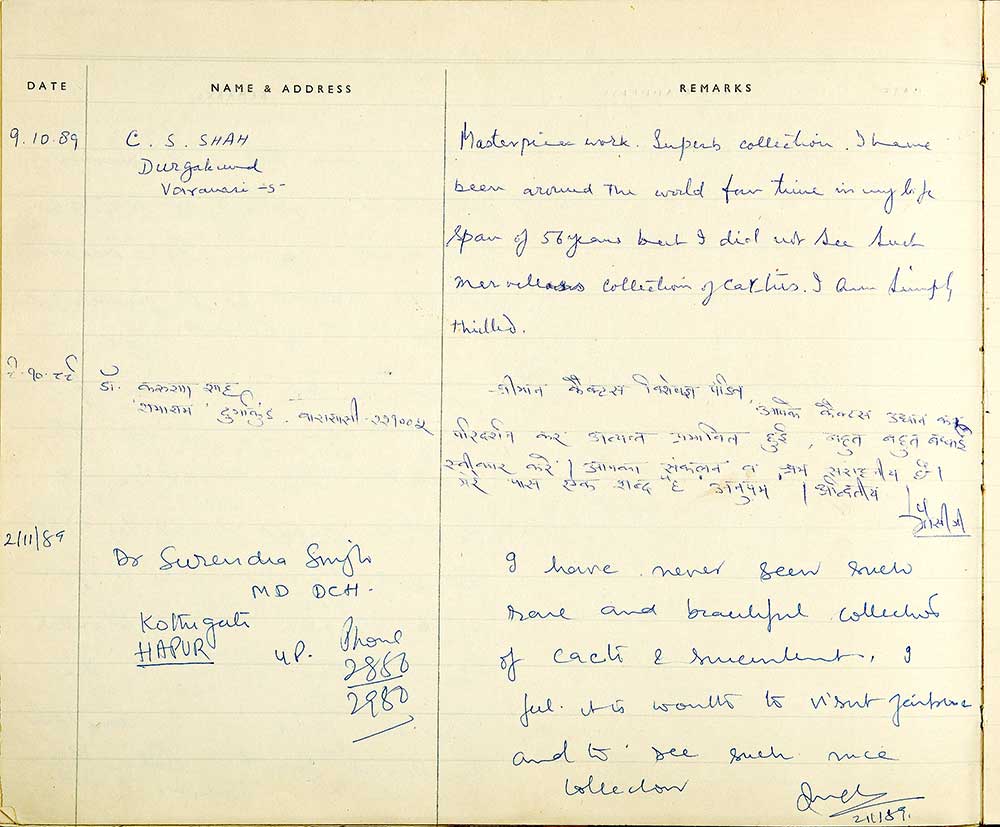 DATE
NAME & ADDRESS
REMARKS
9.10.89
C. S. SHAH
Durgakund
Varanasi -5-
Masterpiece work. Superb collection. I have
been around the world four time in my life
span of 56 years but I did not see such
collection of Caktus. I am simply
thrilled.
९.१०.८९
डॉ. करुणा शाह
दुर्गाकुंड, वाराणसी - २२१००५
श्रीमान कैक्टस विशेषज्ञ पंडित,
आपके कैक्टस उद्यान का
परिदर्शन कर अत्यन्त प्रभावित हुई, बहुत बहुत बधाई
स्वीकार करें। आपका संकलन व श्रम सराहनीय है।
मेरे पास एक शब्द है "अनुपम" । अद्वितीय
2/11/89
Dr Surendra Singh
MD DCH.
HAPUR U.P.
Phone
2850
2980
I have never seen such
rare and beautiful collection
of cacti & succulent. I
feel it is worth to visit
and to see such nice
collection
2/11/89.